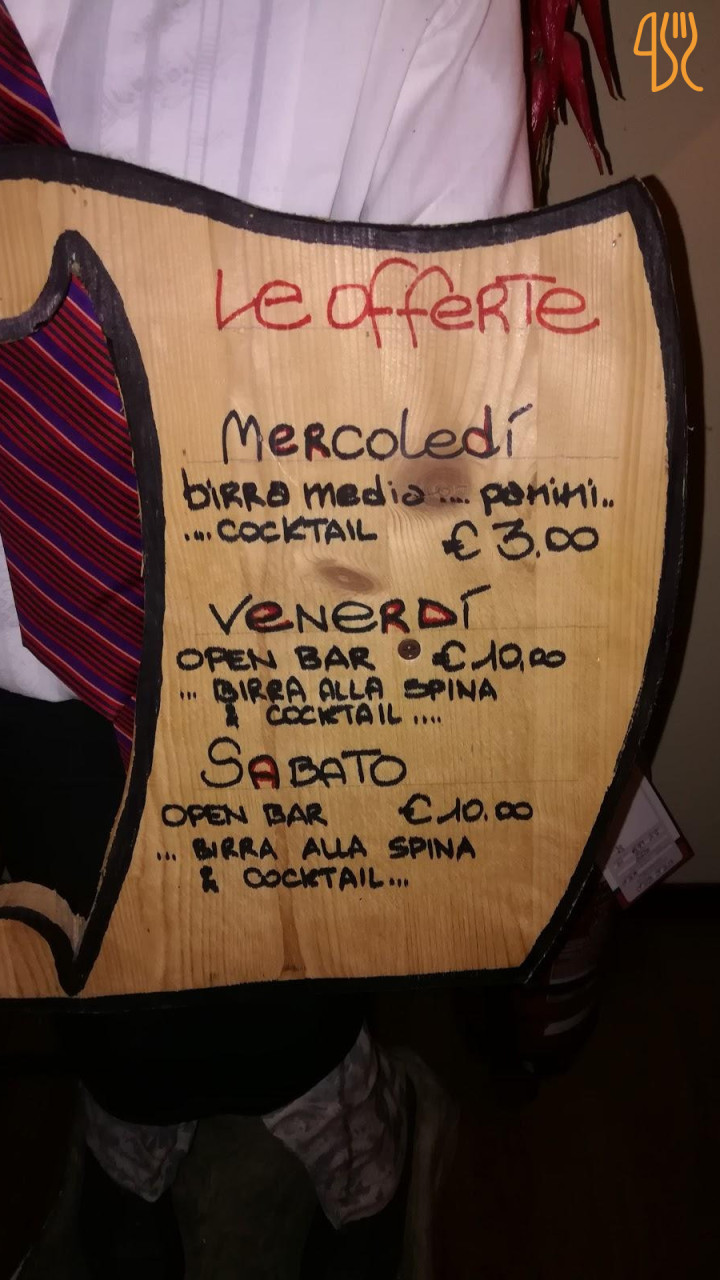 Le offerte
Mercoledí
birra media .... panini..
.... COCKTAIL € 3.00
VENERDÍ
OPEN BAR € 10,00
... BIRRA ALLA SPINA
& COCKTAIL ....
SABATO
OPEN BAR € 10.00
... BIRRA ALLA SPINA
& COCKTAIL...